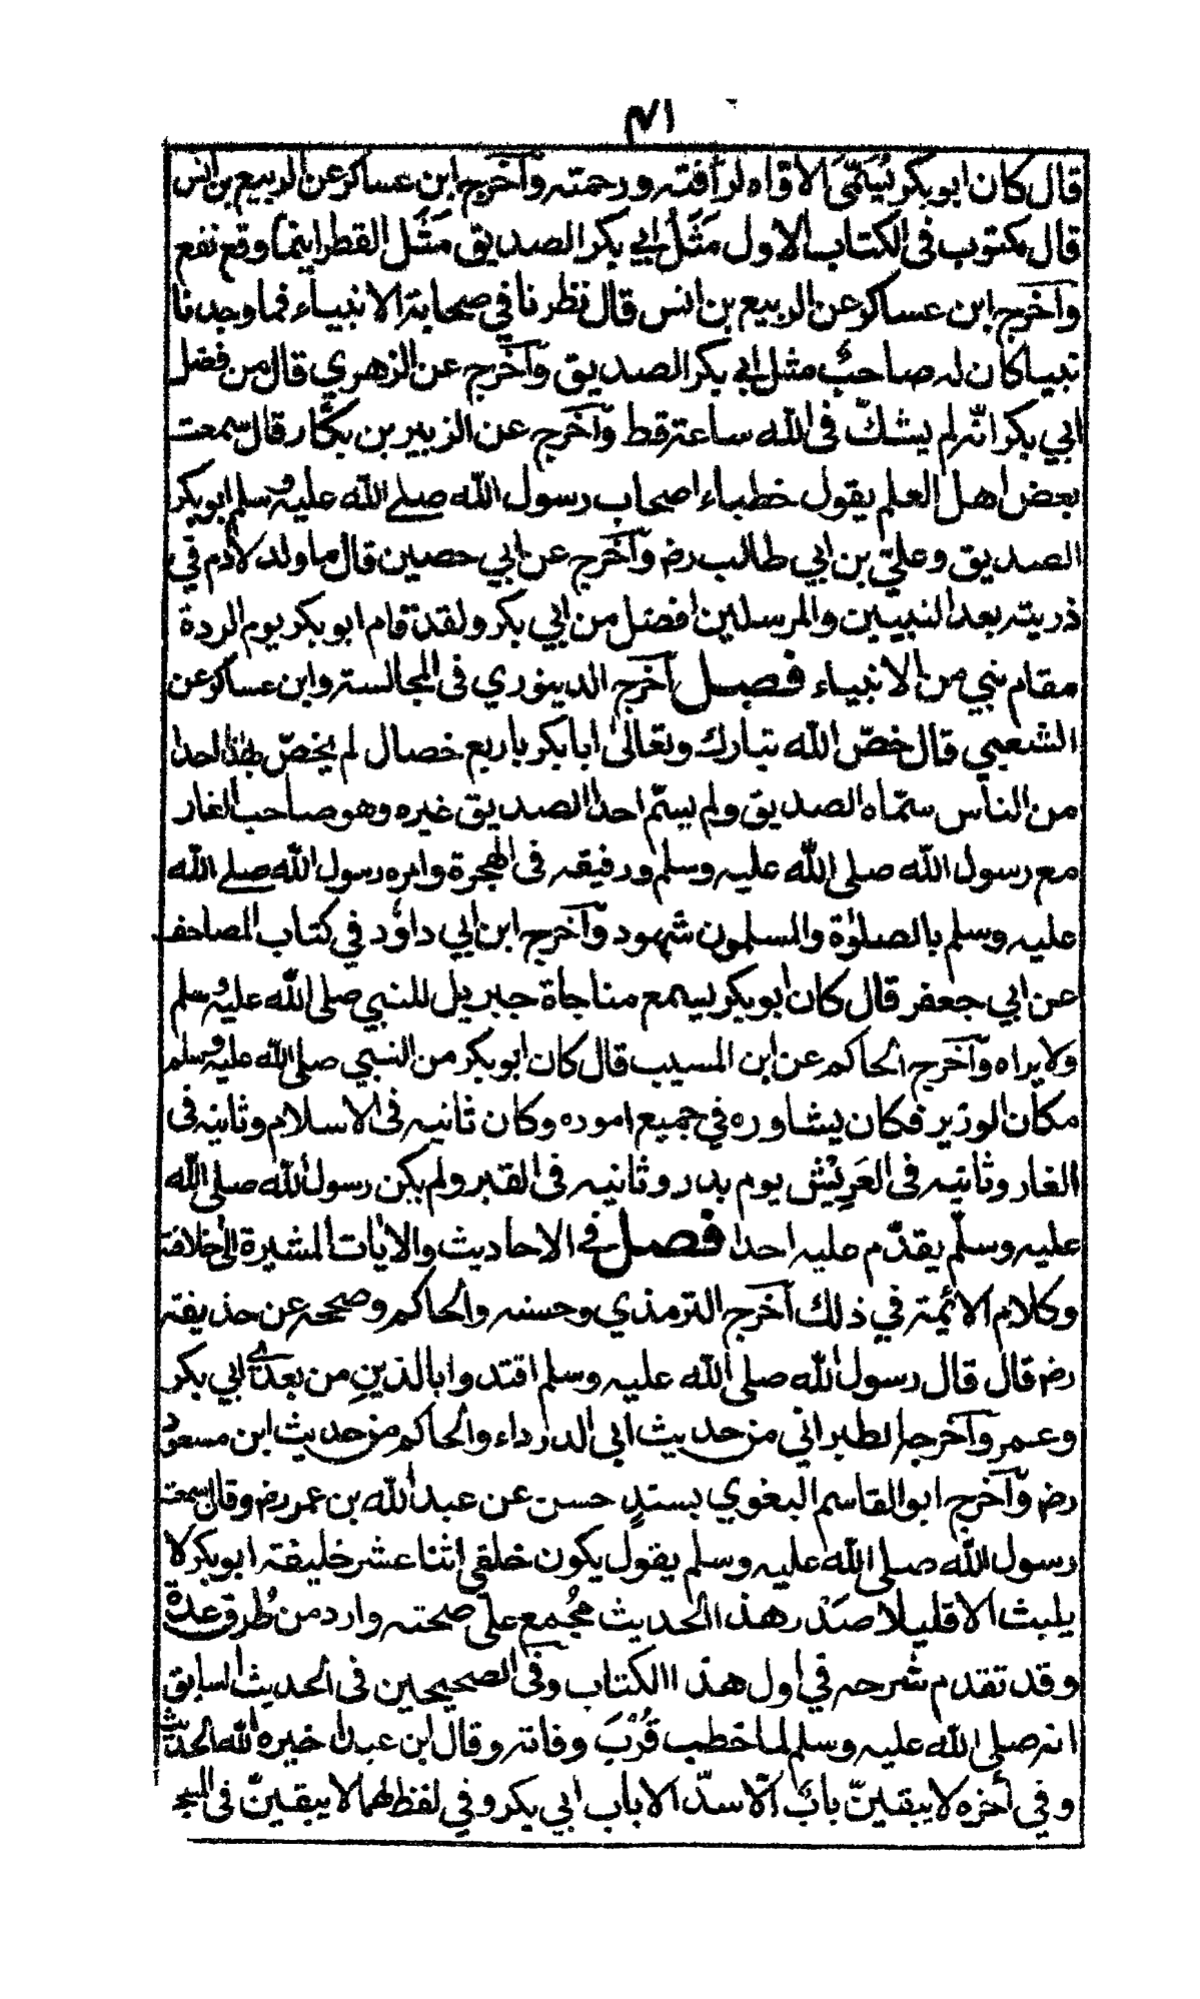 قال كان ابو بكر يُسَمَّى الاوّاه لرأفته ورحمته وآخرج ابن عساكر عن الربيع بن انس
قال مكتوب فى الكتاب الاول مَثَل ابي بكر الصديق مَثَل القطر اينما وقع نفع
وآخرج ابن عساكر عن الربيع بن انس قال نظرنا في صحابة الانبياء فما وجدنا
نبيا كان له صاحبٌ مثل ابي بكر الصديق وآخرج عن الزهري قال من فضل
ابي بكر انّه لم يشكّ فى الله ساعة قط وآخرج عن الزبير بن بكّار قال سمعت
بعض اهل العلم يقول خطباء اصحاب رسول الله صلے الله عليه وسلم ابو بكر
الصديق وعلي بن ابي طالب رض وآخرج عن ابي حصين قال ما ولد لآدم في
ذريته بعد النبيين والمرسلين افضل من ابي بكر ولقد قام ابو بكر يوم الردة
مقام نبي من الانبياء فصل آخرج الدينوري فى المجالسة وابن عساكر عن
الشعبي قال خصّ الله تبارك وتعالى ابا بكر باربع خصال لم يخصّ بهذا احدا
من الناس سمّاه الصديق ولم يسمّ احدا الصديق غيره وهو صاحب الغار
مع رسول الله صلى الله عليه وسلم ورفيقه فى الهجرة وامره رسول الله صلے الله
عليه وسلم بالصلوٰة والمسلمون شهود وآخرج ابن ابي داوُد في كتاب المصاحف
عن ابي جعفر قال كان ابو بكر يسمع مناجاة جبريل للنبي صلى الله عليه وسلم
ولا يراه وآخرج الحاكم عن ابن المسيب قال كان ابو بكر من النبي صلى الله عليه وسلم
مكان الوزير فكان يشاوره في جميع اموره وكان ثانيه فى الاسلام وثانيه فى
الغار وثانيه فى العَرِيْش يوم بدر وثانيه فى القبر ولم يكن رسول الله صلى الله
عليه وسلّم يقدّم عليه احدا فصل فے الاحاديث والايات المشيرة الى خلافته
وكلام الائمة في ذلك آخرج الترمذي وحسنه والحاكم وصححه عن حذيفة
رض قال قال رسول الله صلى الله عليه وسلم اقتدوا بالذينِ من بعدے ابي بكر
وعمر وآخرجه الطبراني من حديث ابى الدرداء والحاكم من حديث ابن مسعود
رض وآخرج ابو القاسم البغوي بسندٍ حسن عن عبد الله بن عمر رض وقال سمعت
رسول الله صلى الله عليه وسلم يقول يكون خلفى اثنا عشر خليفة ابو بكر لا
يلبث الا قليلا صَدْر هذا الحديث مُجْمع على صحته وارد من طُرق عدة
وقد تقدم شرحه في اول هذا الكتاب وفى الصحيحين فى الحديث السابق
انه صلى الله عليه وسلم لما خطب قُرْبَ وفاته وقال ابن عبدا خيره الله الحديث
وفي آخره لا يبقينّ بابٌ الّا سدّ الا باب ابي بكر وفي لفظ لهما لا يبقينّ فى المسجد